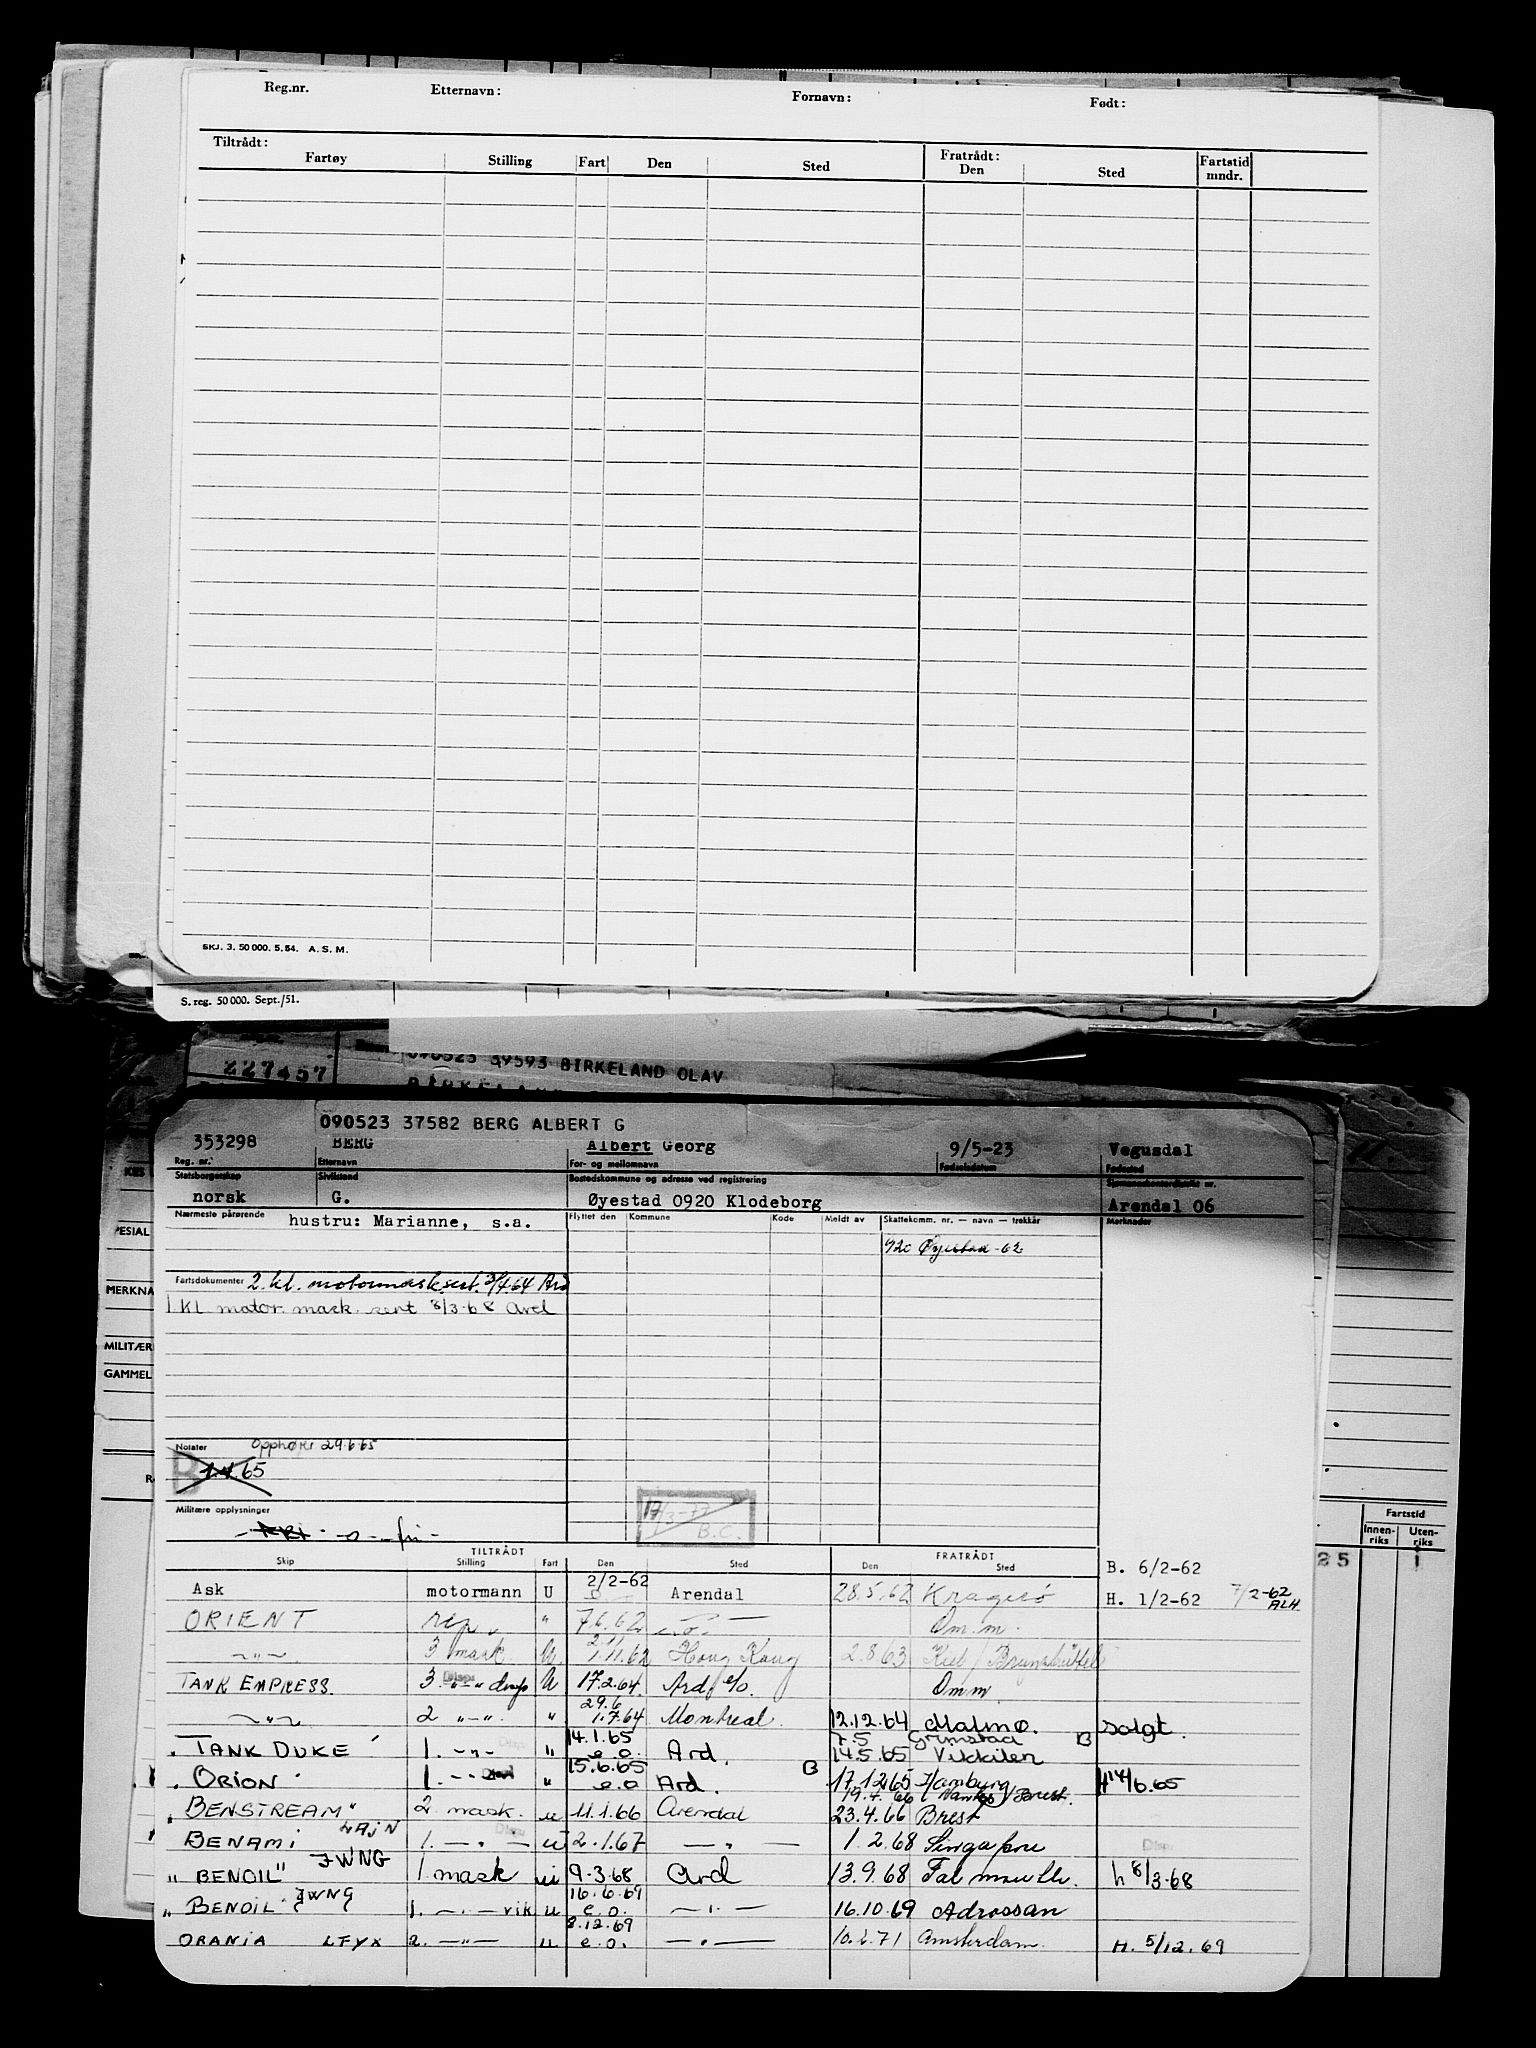 Reg.nr. Etternavn: Fornavn: Født:
Tiltrådt: Fratrådt:
Fartøy Stilling Fart Den Sted Den Sted Fartstid mndr.
SKJ. 3. 50 000. 5.54. A. S. M.
S. reg. 50 000. Sept./51.
227457
090523 39593 BIRKELAND OLAV
090523 37582 BERG ALBERT G
353298 BERG Albert Georg 9/5-23 Vegusdal
Reg. nr. Etternavn For- og mellomnavn Fødselsdatum Fødested
Statsborgerskap Sivilstand Bostedskommune og adresse ved registrering
norsk G. Øyestad 0920 Klodeborg Arendal 06
Nærmeste pårørende hustru: Marianne, s.a. Flyttet den Kommune Kode Meldt av Skattekomm. nr. — navn — trekkår Merknader
920 Øyestad -62
Fartsdokumenter 2. kl. motormask.sert. 3/4.64 Ard
1 kl motor mask sert 8/3-68 Ard
MERKNA
MILITÆR
GAMMEL
Notater Opphører 29.6.65
B 1.4.65
Militære opplysninger
17/3-77
B.C.
TILTRÅDT FRATRÅDT
Skip Stilling Fart Den Sted Den Sted
Fartstid
Innen-riks Uten-riks
25 1
B. 6/2-62
2/2-62
Ask motormann U Arendal 28.5.62 Kragerø H. 1/2-62 7/2-62 ALH
ORIENT rep. " 7.6.62 —o— Om.m.
—"— 3 mask. U. 1.11.62 Hong Kong 2.8.63 Kiel/Brunsbüttel
TANK EMPRESS 3. —"— disp U 17.2.64. Ard e/o. Omm.
29.6
—"— 2 —"—. " 1.7.64 Montreal. 12.12.64 Malmø. solgt.
14.1.65 7.5 Grimstad B
TANK DUKE 1. —"— " e.o. Ard. 14.5.65 Vikkilen
15.6.65 B
ORION 1. —"— " e.o Ard. 17.12.65 Hamburg H 14/6.65
19.4.66
"BENSTREAM" 2. mask. u 11.1.66 Arendal 23.4.66 Brest
BENAMI LAJN 1. —"— u 2.1.67 —"— 1.2.68 Singapore
"BENOIL" JWNG 1 mask u 9-3.68 Ard 13.9.68 Falmouth. h 8/3-68
16.6.69
"BENOIL" JWNG 1. —"— vik u e.o. —"— 16.10.69 Adrossan
8.12.69
ORANIA LFYX 2. —"— u e.o. —"— 10.2.71 Amsterdam. H. 5/12.69